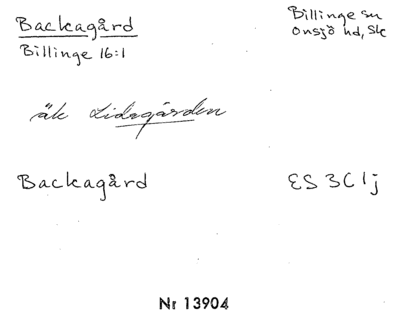 Backagård
Billinge 16:1
Billinge sn
Onsjö hd, Sk
äk Lidagården
Backagård
ES 3C 1j
Nr 13904